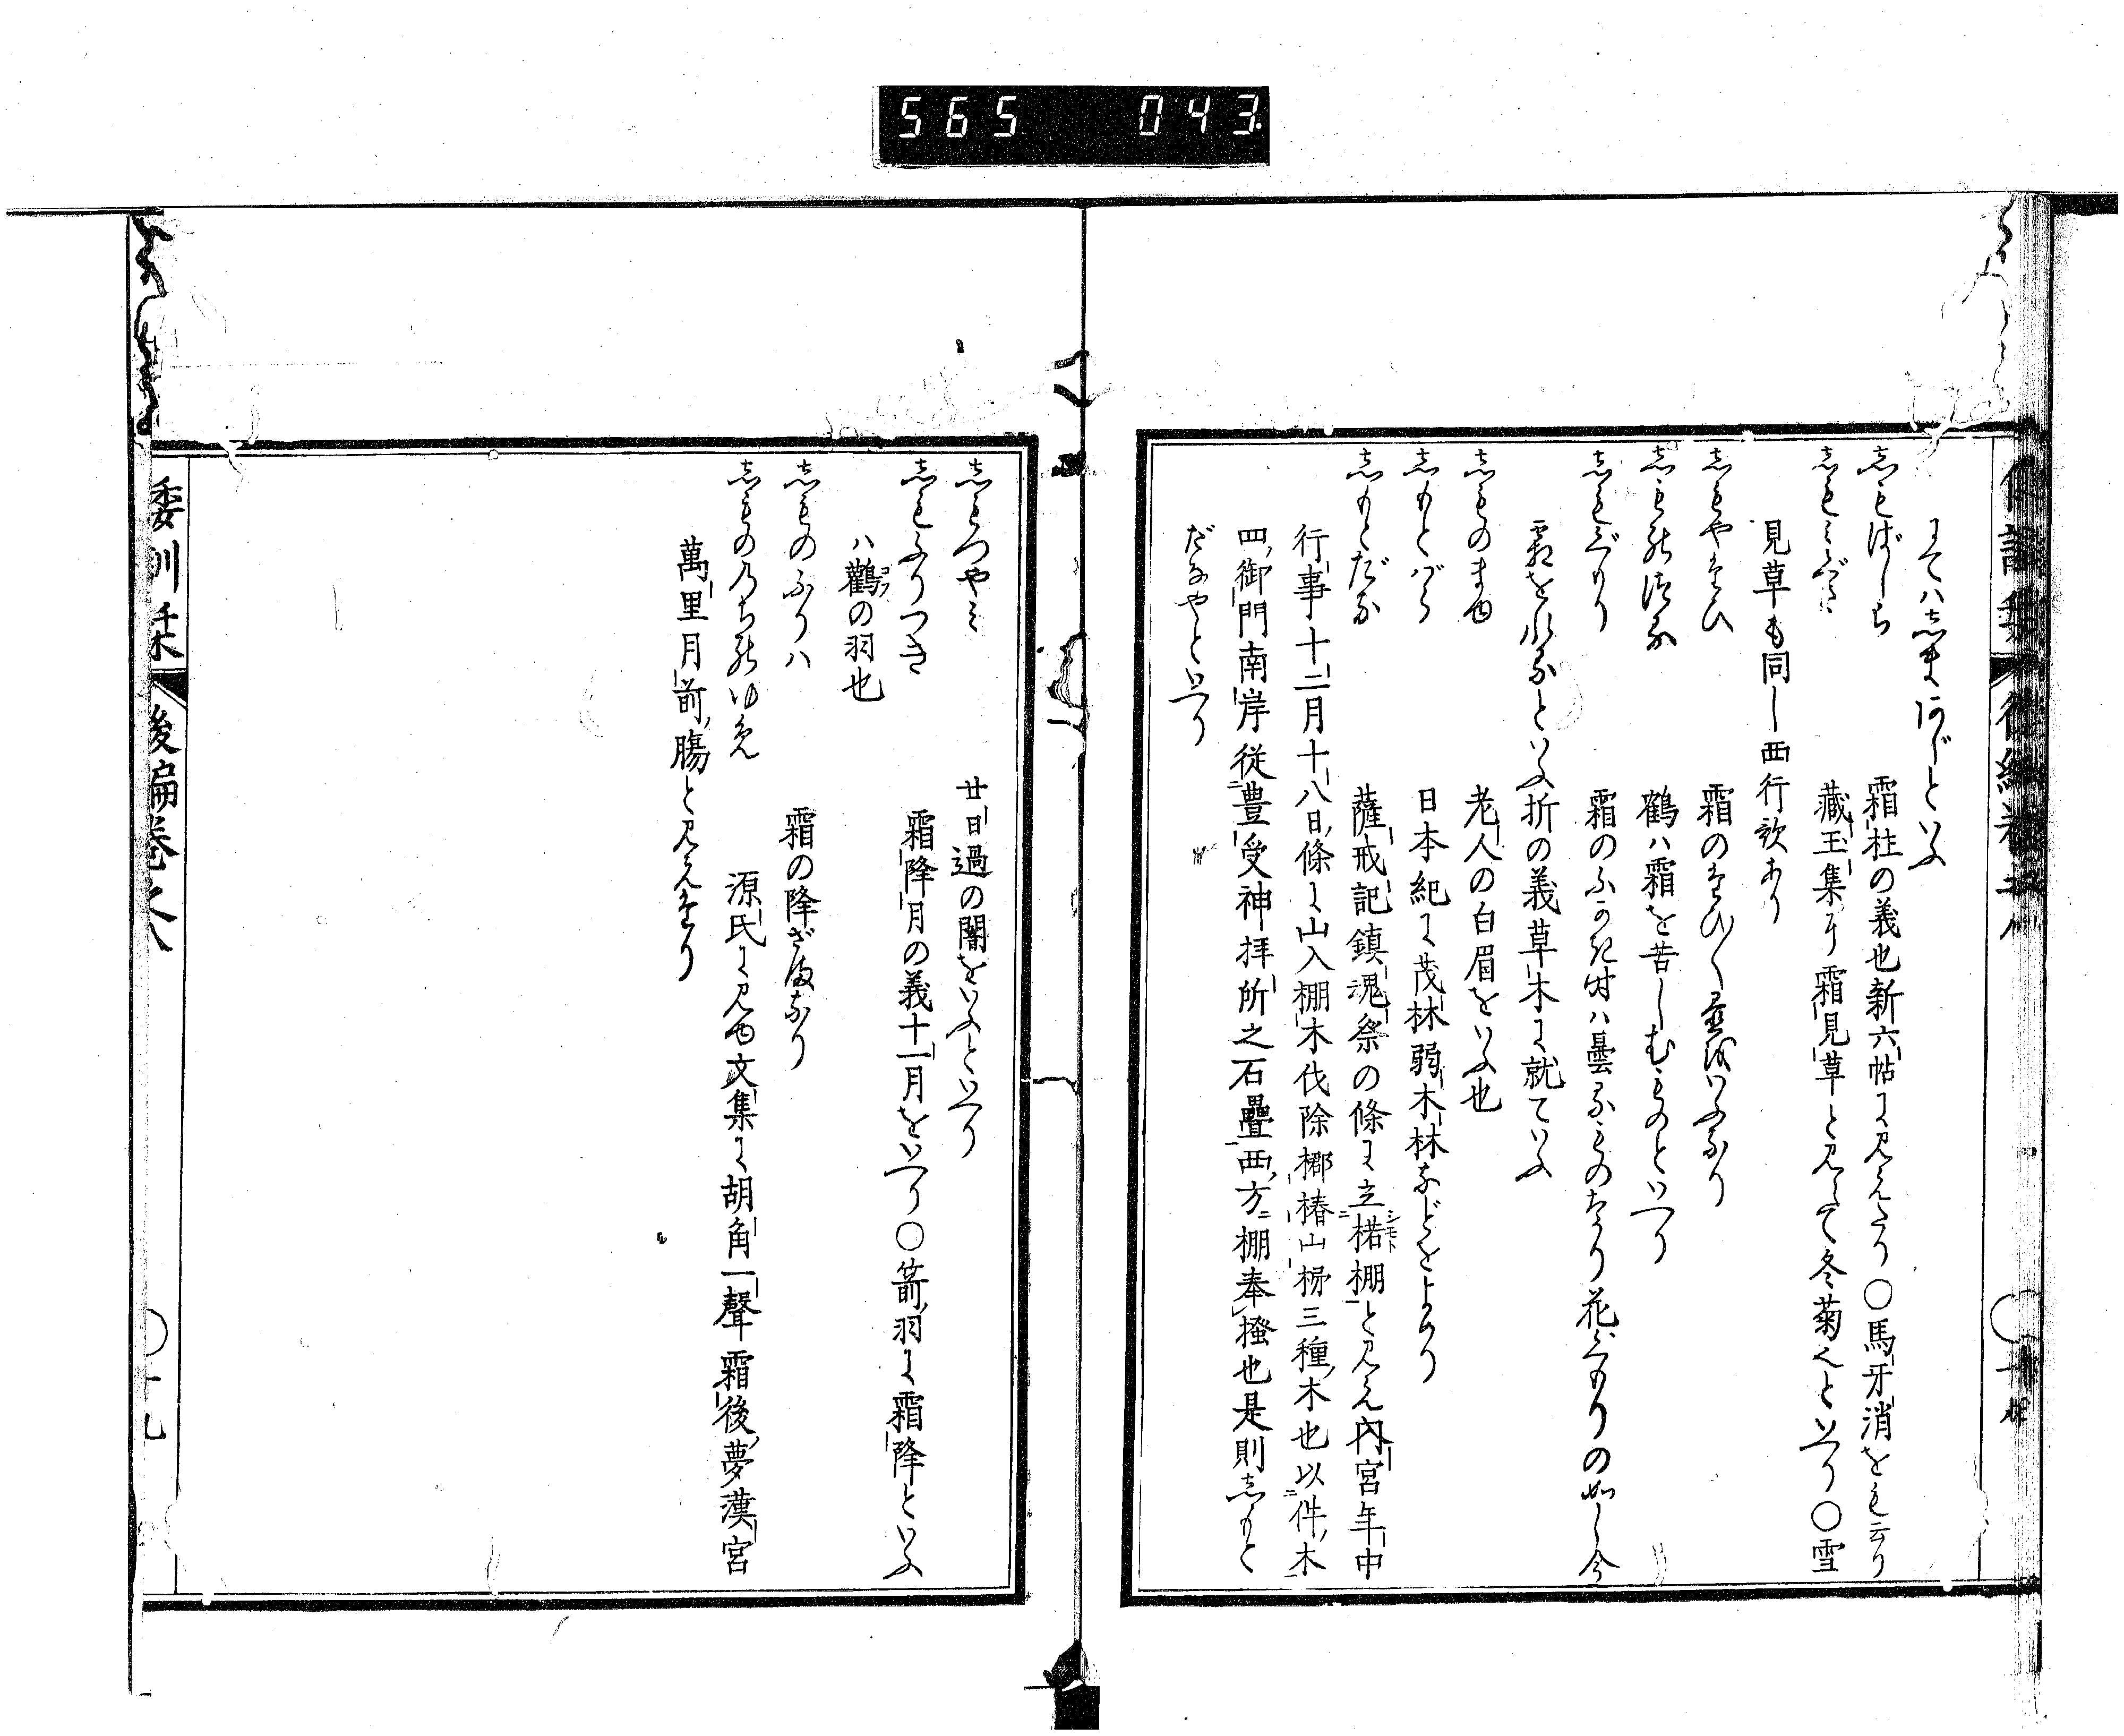 565 043
にてハ志まにあぢといふ
志もばしら 霜柱の義也新六帖に見えたり○馬牙消をも云り
志もみぐさ 藏玉集に霜見草と見えて冬菊也といへり○雪
見草も同し西行歌あり
志もやけひ
志もの後の 鶴ハ霜を苦しむものといへり
志もぐもり 霜のふかき時ハ曇るものなり花ぐもりの如し今
霜を水ると
いふ折の義草木に就ていふ
志ものまゆ 老人の白眉をいふ也
志もとばら 日本紀に茂林弱木林などをよめり
志もとだな 薩戒記鎮魂祭の條に立楉棚と見え内宮年中
行事十二月十八日條に山入棚木伐除榔椿山三種木也以件木
四御門南岸従豊受神拝所之石疊西方棚奉搔也是則志もと
だなやといへり
志もつやミ 廿日過の闇をいふといへり
志もふりつき 霜降月の義十一月をいへり○箭羽に霜降といふ
ハ鸛の羽也
志ものふりハ 霜の降ざまなり
志ものゝちのゆめ 源氏に見ゆ文集に胡角一聲霜後夢漢宮
萬里月前腸と見えたり
委訓栞 後編巻之八 ○十九